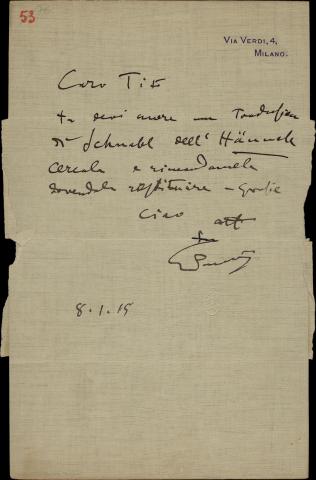 53
Via Verdi, 4,
Milano.
Caro Tito
tu devi avere una Traduzione
di Schnabl dell' Hännele
cercala e rimandamela
dovendola restituire – Grazie
Ciao
8.1.15